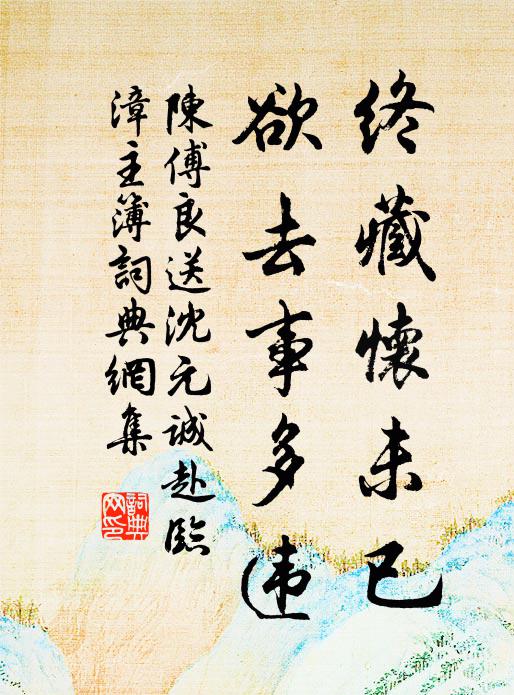 終藏懷未已
欲去事多违
陳傅良送沈元誠赴臨
漳主簿詞典網集
詞典
网印